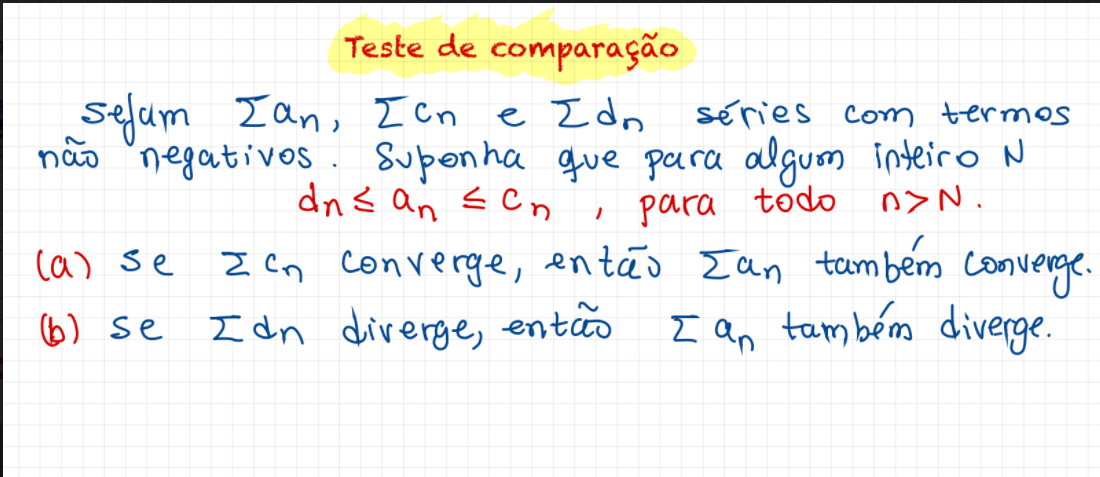 Teste de comparação
Sejam Σan, Σcn e Σdn séries com termos
não negativos. Suponha que para algum inteiro N
dn ≤ an ≤ cn, para todo n>N.
(a) se Σcn converge, então Σan também converge.
(b) se Σdn diverge, então Σan também diverge.